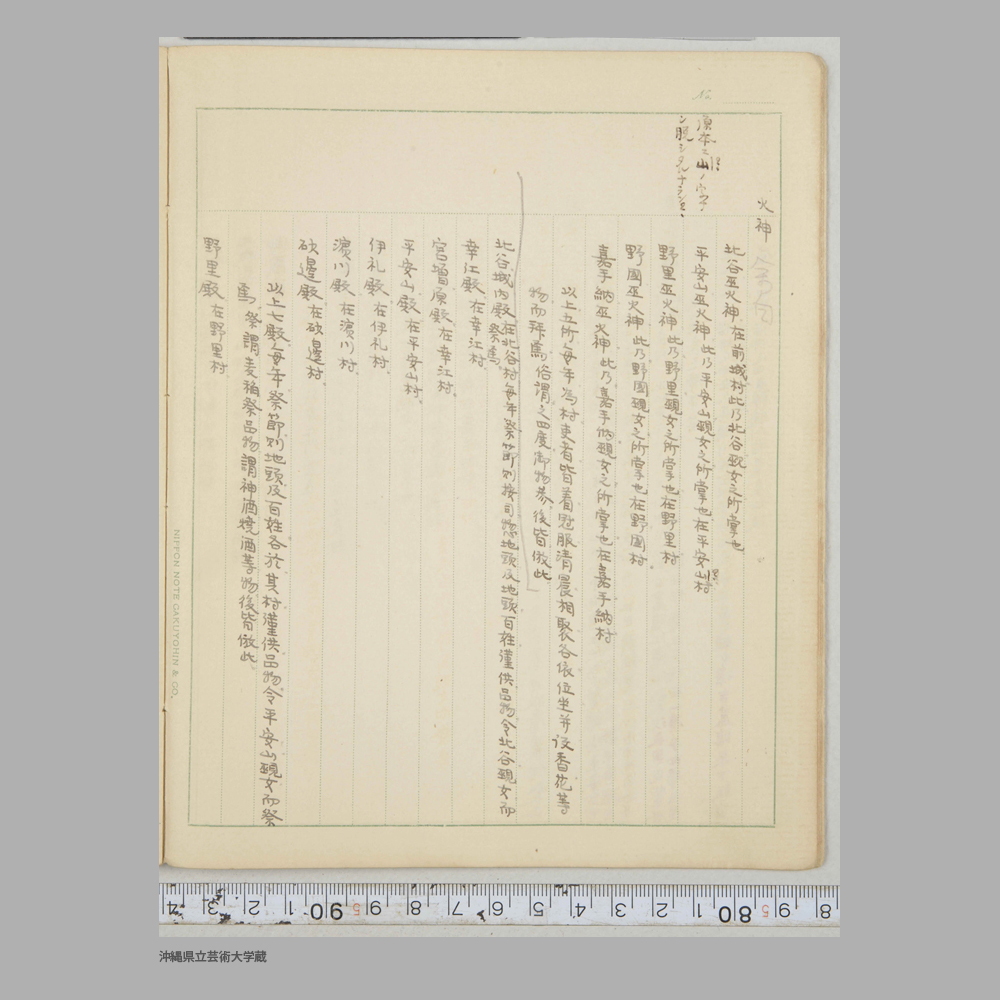 火神
北谷巫火神 在前城村此乃北谷覡女之所掌也
平安山巫火神 此乃平安山覡女之所掌也在平安山村
野里巫火神 此乃野里覡女之所掌也在野里村
野國巫火神 此乃野國覡女之所掌也在野国村。
嘉手納巫火神 此乃嘉手納覡女之所掌也在嘉手納村
以上五所毎年為村吏者皆着冠服清晨相聚各依位坐并設香花等
物而拜焉俗謂之四度御物参後皆倣此
北谷城内殿 在北谷村毎年祭節則按司惣地頭及地頭百姓謹供品物令北谷覡女而
祭焉。
幸江殿 在幸江村。
宮増原殿 在幸江村。
平安山殿 在平安山村。
伊礼殿 在伊礼村。
濵川殿 在濵川村。
砍邊殿 在砍邊村。
以上七殿毎年祭節則地頭及百姓各於其村謹供品物。令平安山覡女而祭
焉。祭謂麦稲祭品物謂神酒焼酒等物後皆倣此。
野里殿 在野里村
原本ニ山ノ字
ン脱
No.
NIPPON NOTE GAKUYOHIN & CO.
4 3 2 1 90 9 8 7 6 5 4 3 2 1 80 9 8
5 5
沖縄県立芸術大学蔵